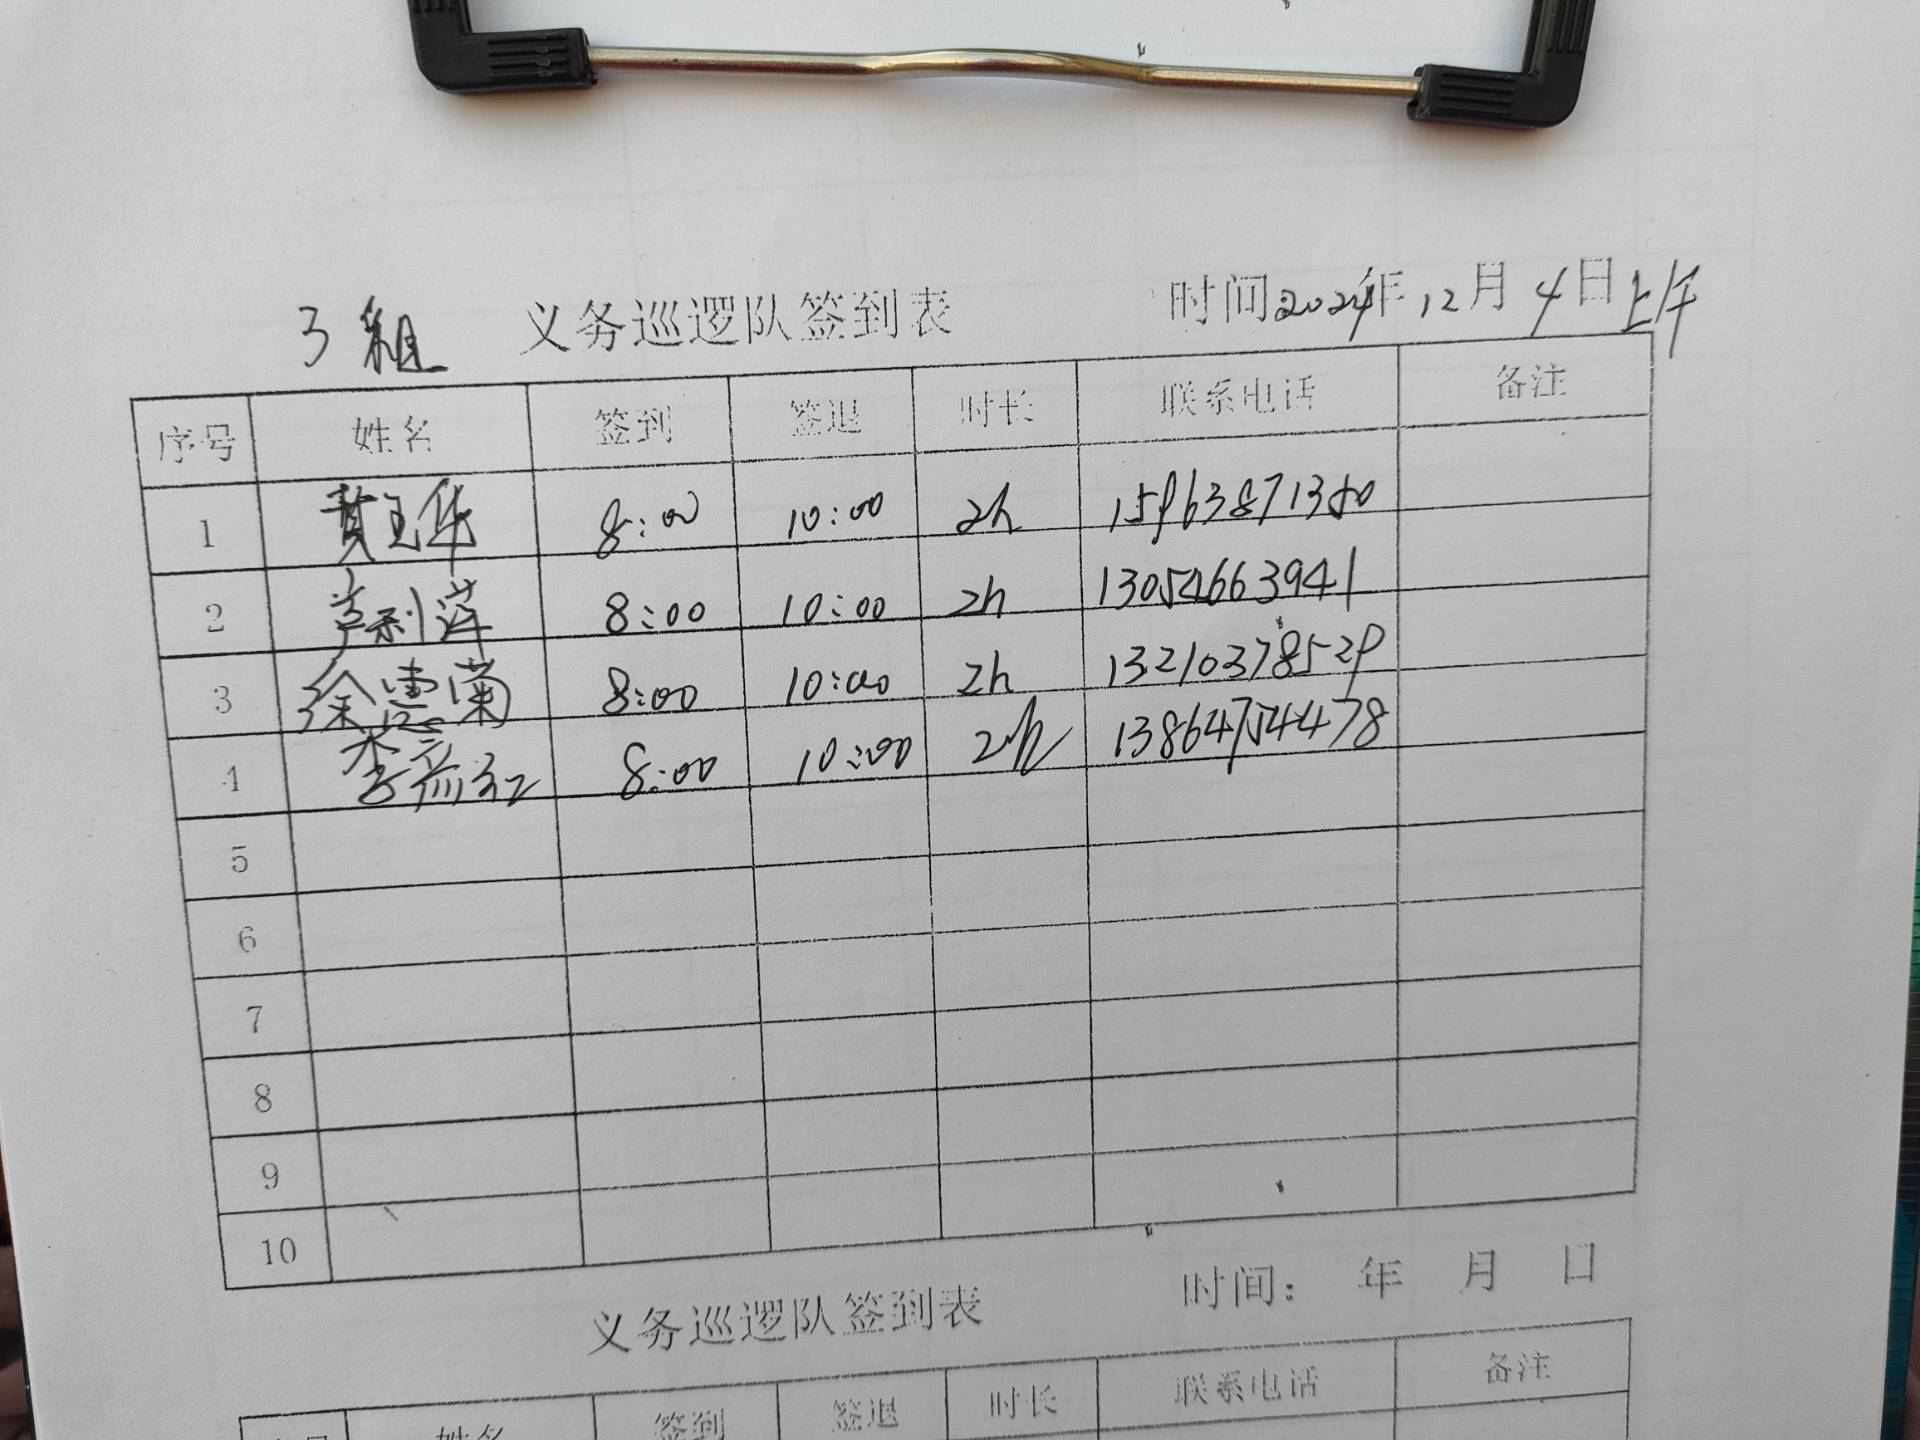 3组 义务巡逻队签到表 时间2024年12月4日上午
序号 姓名 签到 签退 时长 联系电话 备注
1 黄玉华 8:00 10:00 2h 15963871380
2 芦利萍 8:00 10:00 2h 13054663941
3 徐惠菊 8:00 10:00 2h 13210378529
4 李彦红 8:00 10:00 2h 13864754478
5
6
7
8
9
10
义务巡逻队签到表 时间: 年 月 日
姓名 签到 签退 时长 联系电话 备注